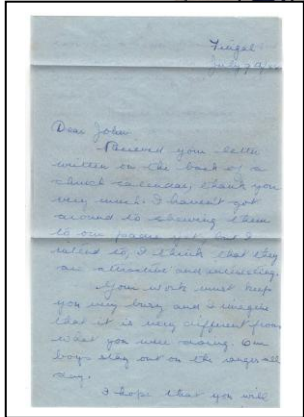 Fingal
July 7
Dear John
Received your letter
written on the back of a
church calendar, thank you
very much. I haven't got
around to showing them
to our pastor yet, but I
intend to, I think that they
are attractive and interesting.
Your work must keep
you very busy and I imagine
that it is very different from
what you were doing. Our
boys stay out on the all
day.
I hope that you will